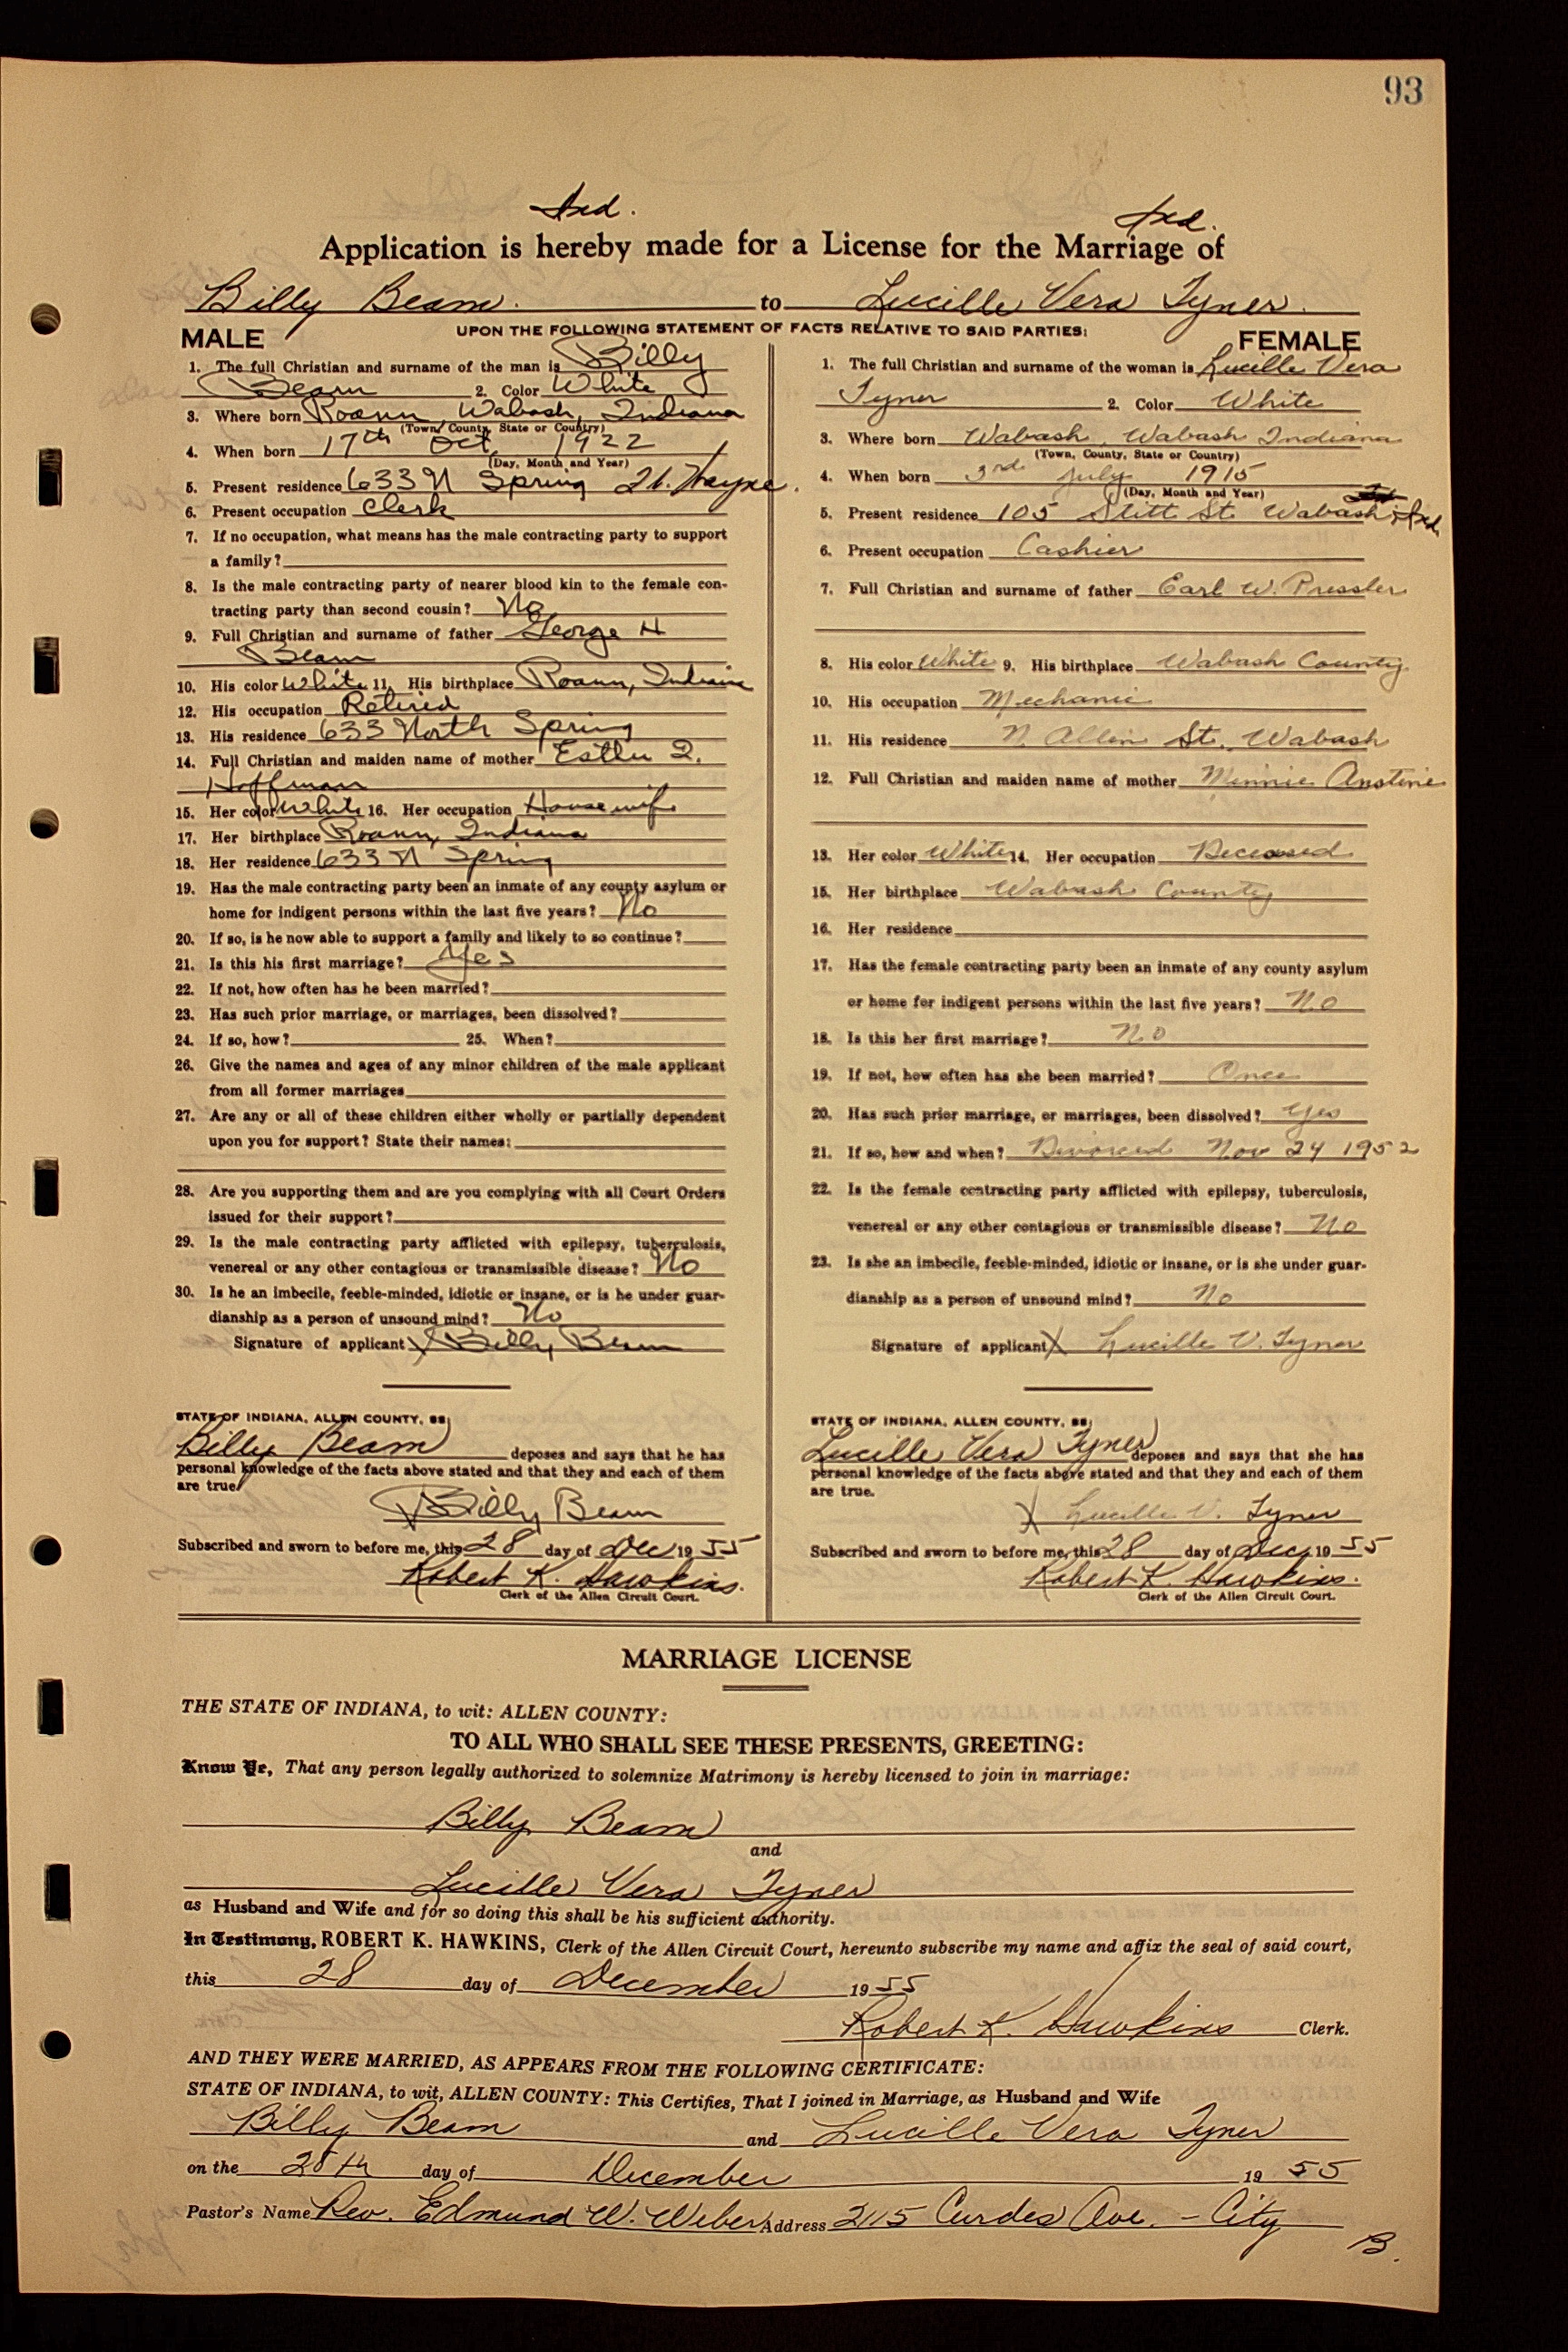 93
Ind. Ind.
Application is hereby made for a License for the Marriage of
Billy Beam. to Lucille Vera Tyner.
UPON THE FOLLOWING STATEMENT OF FACTS RELATIVE TO SAID PARTIES:
MALE
1. The full Christian and surname of the man is Billy
Beam 2. Color White
3. Where born Roann, Wabash, Indiana
(Town, County, State or Country)
4. When born 17th Oct, 1922
(Day, Month and Year)
5. Present residence 633 N Spring Ft. Wayne.
6. Present occupation Clerk
7. If no occupation, what means has the male contracting party to support
a family?
8. Is the male contracting party of nearer blood kin to the female con-
tracting party than second cousin? No
9. Full Christian and surname of father George H
Beam
10. His color White 11. His birthplace Roann, Indiana
12. His occupation Retired
13. His residence 633 North Spring
14. Full Christian and maiden name of mother Esther I.
Hoffman
15. Her color White 16. Her occupation Housewife
17. Her birthplace Roann, Indiana
18. Her residence 633 N Spring
19. Has the male contracting party been an inmate of any county asylum or
home for indigent persons within the last five years? No
20. If so, is he now able to support a family and likely to so continue?
21. Is this his first marriage? Yes
22. If not, how often has he been married?
23. Has such prior marriage, or marriages, been dissolved?
24. If so, how? 25. When?
26. Give the names and ages of any minor children of the male applicant
from all former marriages
27. Are any or all of these children either wholly or partially dependent
upon you for support? State their names:
28. Are you supporting them and are you complying with all Court Orders
issued for their support?
29. Is the male contracting party afflicted with epilepsy, tuberculosis,
venereal or any other contagious or transmissible disease? No
30. Is he an imbecile, feeble-minded, idiotic or insane, or is he under guar-
dianship as a person of unsound mind? No
Signature of applicant X Billy Beam
STATE OF INDIANA, ALLEN COUNTY, SS;
Billy Beam deposes and says that he has
personal knowledge of the facts above stated and that they and each of them
are true.
Billy Beam
Subscribed and sworn to before me, this 28 day of Dec 19 55
Robert K. Hawkins.
Clerk of the Allen Circuit Court.
FEMALE
1. The full Christian and surname of the woman is Lucille Vera
Tyner 2. Color White
3. Where born Wabash, Wabash Indiana
(Town, County, State or Country)
4. When born 3rd July 1915
(Day, Month and Year)
5. Present residence 105 Stitt St. Wabash, Ind
6. Present occupation Cashier
7. Full Christian and surname of father Earl W. Pressler
8. His color White 9. His birthplace Wabash County
10. His occupation Mechanic
11. His residence N. Allen St. Wabash
12. Full Christian and maiden name of mother Minnie Anstine
13. Her color White 14. Her occupation Deceased
15. Her birthplace Wabash County
16. Her residence
17. Has the female contracting party been an inmate of any county asylum
or home for indigent persons within the last five years? No
18. Is this her first marriage? No
19. If not, how often has she been married? Once
20. Has such prior marriage, or marriages, been dissolved? Yes
21. If so, how and when? Divorced Nov 24 1952
22. Is the female contracting party afflicted with epilepsy, tuberculosis,
venereal or any other contagious or transmissible disease? No
23. Is she an imbecile, feeble-minded, idiotic or insane, or is she under guar-
dianship as a person of unsound mind? No
Signature of applicant X Lucille V. Tyner
STATE OF INDIANA, ALLEN COUNTY, SS;
Lucille Vera Tyner deposes and says that she has
personal knowledge of the facts above stated and that they and each of them
are true.
X Lucille V. Tyner
Subscribed and sworn to before me, this 28 day of Dec, 19 55
Robert K. Hawkins.
Clerk of the Allen Circuit Court.
MARRIAGE LICENSE
THE STATE OF INDIANA, to wit: ALLEN COUNTY:
TO ALL WHO SHALL SEE THESE PRESENTS, GREETING:
Know Ye, That any person legally authorized to solemnize Matrimony is hereby licensed to join in marriage:
Billy Beam
and
Lucille Vera Tyner
as Husband and Wife and for so doing this shall be his sufficient authority.
In Testimony, ROBERT K. HAWKINS, Clerk of the Allen Circuit Court, hereunto subscribe my name and affix the seal of said court,
this 28 day of December 19 55
Robert K. Hawkins Clerk.
AND THEY WERE MARRIED, AS APPEARS FROM THE FOLLOWING CERTIFICATE:
STATE OF INDIANA, to wit, ALLEN COUNTY: This Certifies, That I joined in Marriage, as Husband and Wife
Billy Beam and Lucille Vera Tyner
on the 28th day of December 19 55
Pastor's Name Rev. Edmund W. Weber Address 2115 Curdes Ave. - City
B.